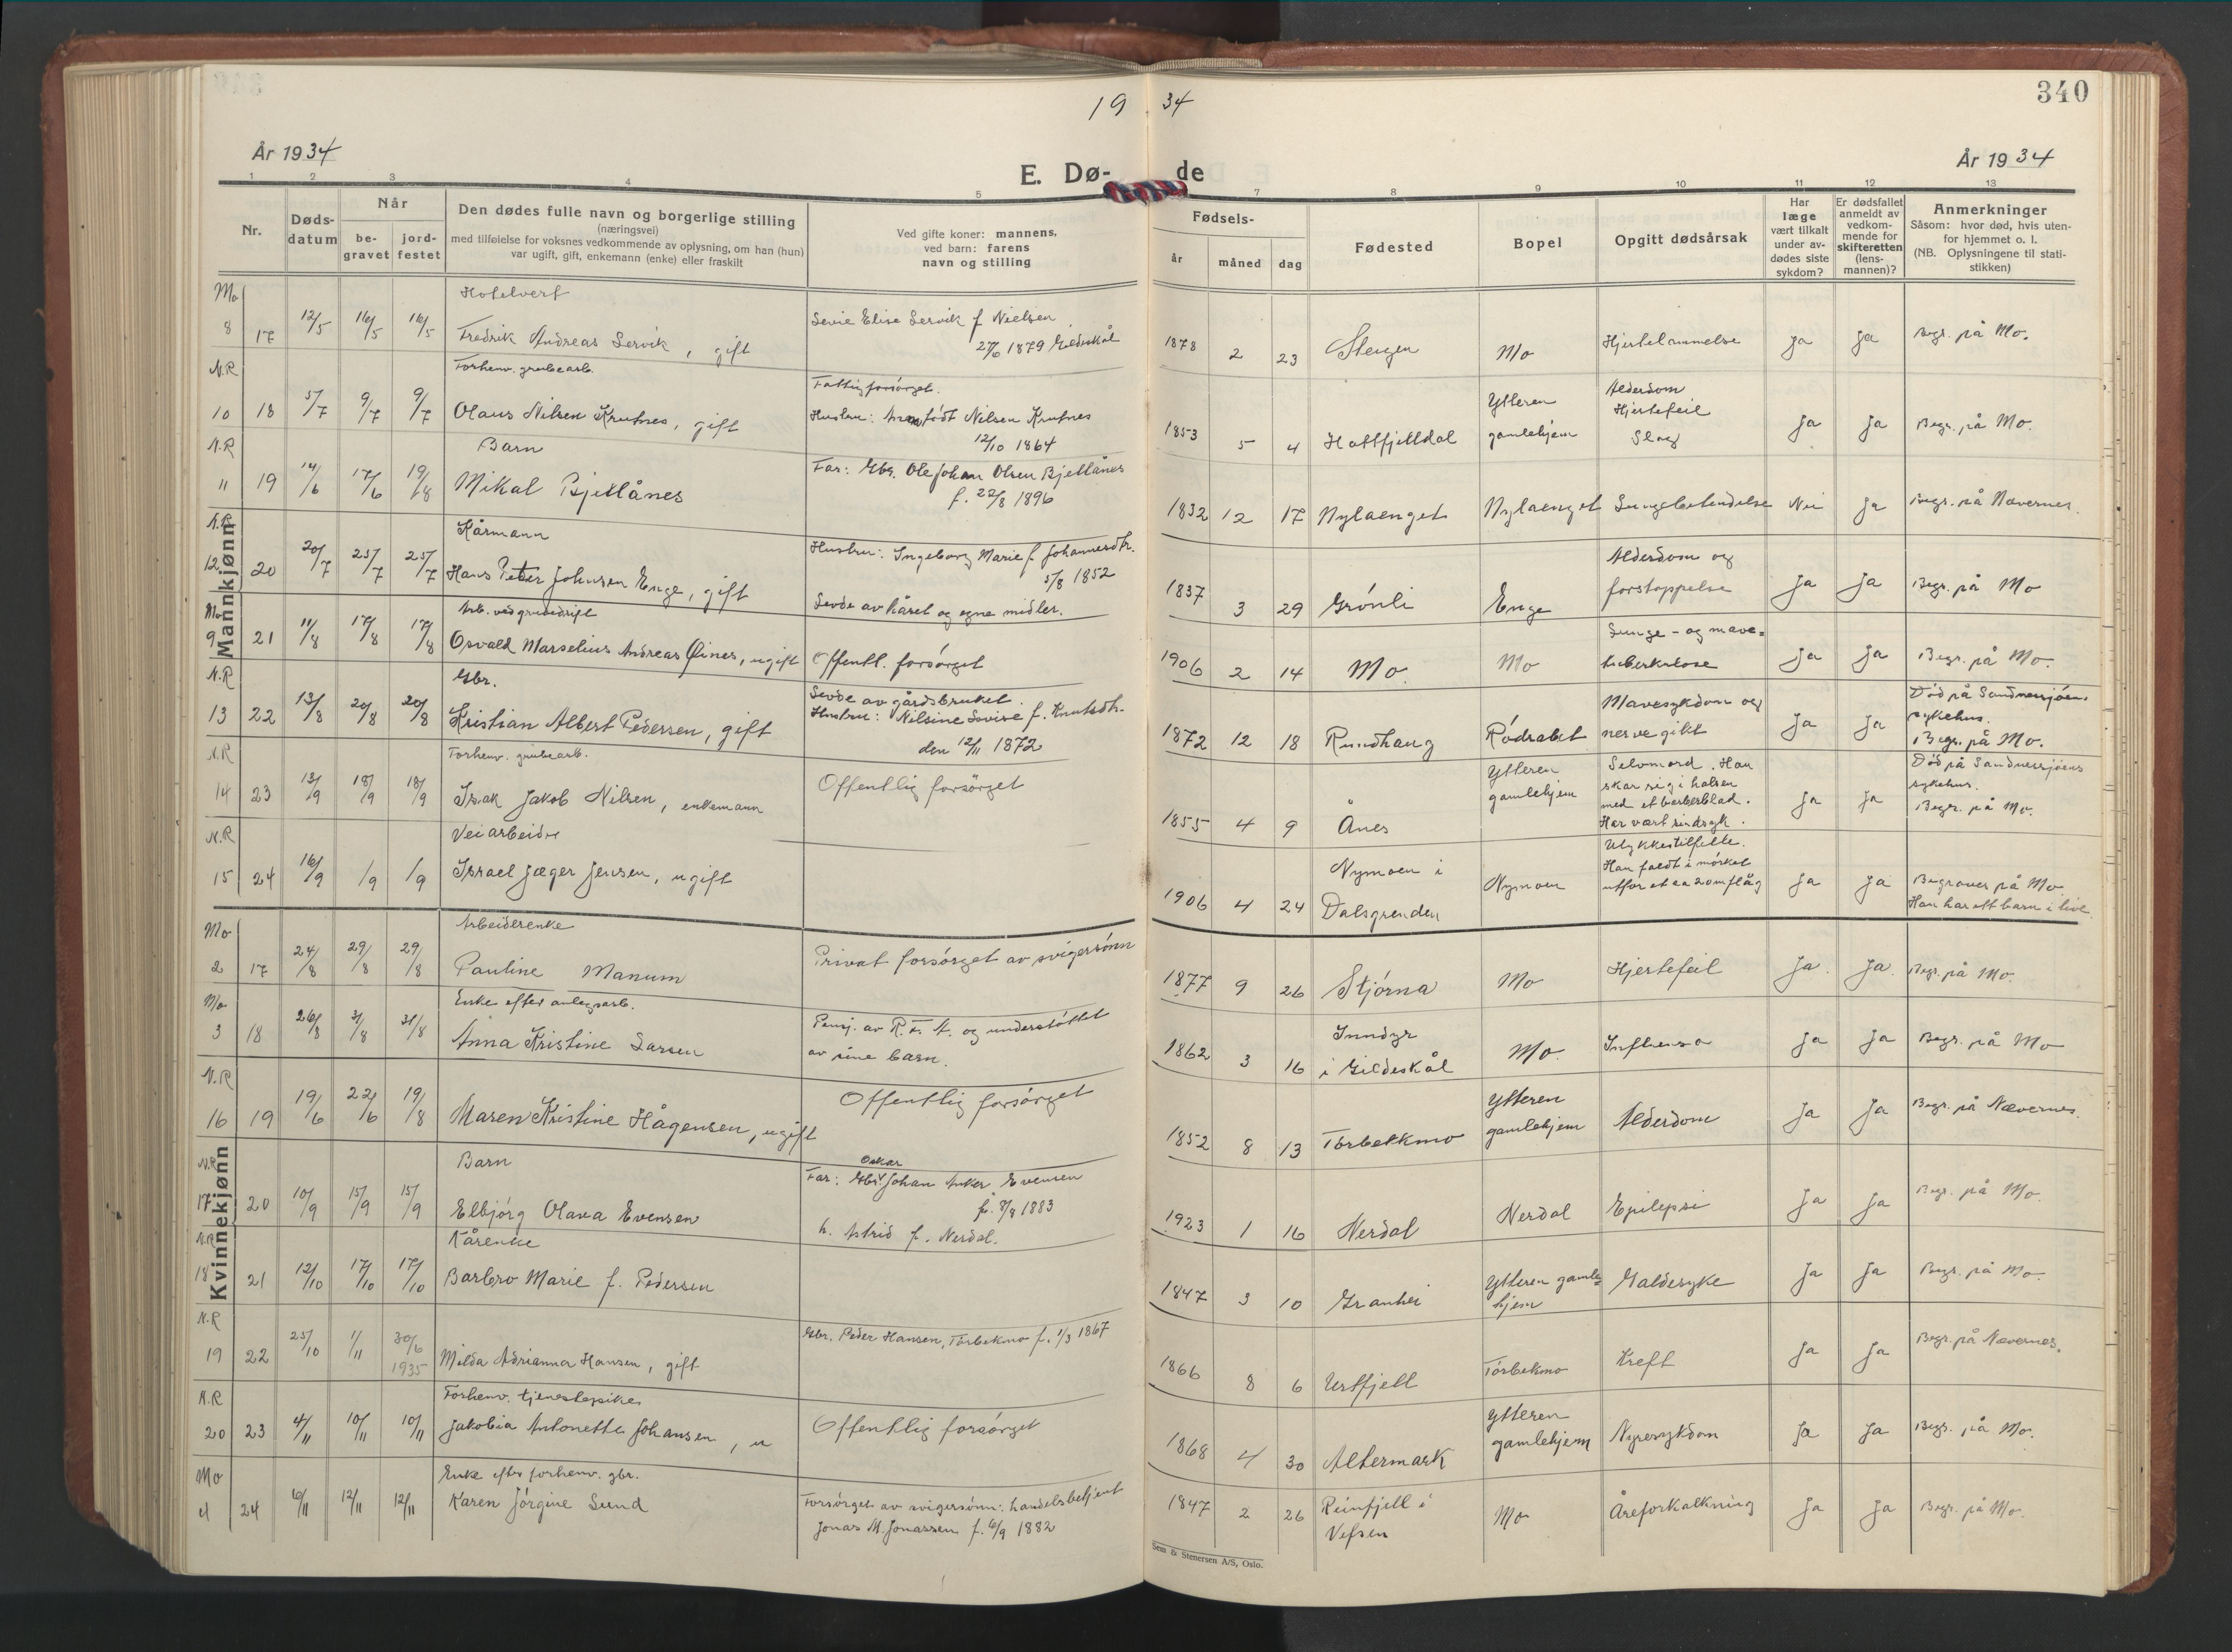 340
19 34
År 1934
År 1934
E. Dø- de
1 2 3 4 5 7 8 9 10 11 12 13
Nr.
Døds-
datum
Når
be-
gravet
jord-
festet
Den dødes fulle navn og borgerlige stilling
(næringsvei)
med tilføielse for voksnes vedkommende av oplysning, om han (hun)
var ugift, gift, enkemann (enke) eller fraskilt
Ved gifte koner: mannens,
ved barn: farens
navn og stilling
Fødsels-
år måned dag
Fødested
Bopel
Opgitt dødsårsak
Har
læge
vært tilkalt
under av-
dødes siste
sykdom?
Er dødsfallet
anmeldt av
vedkom-
mende for
skifteretten
(lens-
mannen)?
Anmerkninger
Såsom: hvor død, hvis uten-
for hjemmet o. l.
(NB. Oplysningene til stati-
stikken)
Mannkjønn
Mo Hotelvert
8 17 12/5 16/5 16/5 Fredrik Andreas Servik, gift
Elise Servik f. Nielsen
1879 Gildeskål
1878 2 23 Steigen Mo Hjertelammelse Ja Ja Begr. på Mo.
N.R Forhenv. grubearb.
10 18 5/7 9/7 9/7 Olaus Nilsen Krutnes, gift
Fattigforsørget.
Hustru: født Nilsen Krutnes
12/10 1864
1853 5 4 Hattfjelldal
Ytteren
gamlehjem
Alderdom
Hjertefeil
Slag
Ja Ja Begr. på Mo.
N.R Barn
11 19 14/6 17/6 19/8 Mikal Bjellånes
Far: Gbr. Ole Johan Olsen Bjellånes
f. 22/8 1896
1832 12 17 Nylaenget Nylaenget Lungebetendelse Nei Ja Begr. på Nævernes.
N.R Kårmann
12 20 20/7 25/7 25/7 Hans Peter Johnsen Enge, gift
Hustru: Ingeborg Marie f. Johannesdtr.
5/8 1852
1837 3 29 Grønli Enge
Alderdom og
forstoppelse
Ja Ja Begr. på Mo
Mo Arb. ved grubedrift
9 21 11/8 17/8 17/8 Osvald Marselius Andreas Øines, ugift
Levde av kåret og egne midler.
Offentl. forsørget
1906 2 14 Mo. Mo
Lunge- og mave-
tuberkulose
Ja Ja Begr. på Mo.
N.R Gbr.
13 22 13/8 20/8 20/8 Kristian Albert Pedersen, gift
Levde av gårdsbruket.
Hustru: Nilsine Lovise f. Knutsdtr.
den 12/11 1872
1872 12 18 Rundhaug Rødsabet
Mavesykdom og
nervegikt
Ja Ja
Død på Sandnessjøens
sykehus.
Begr. på Mo.
N.R Forhenv. grubearb.
14 23 13/9 18/9 18/9 Isak Jakob Nilsen, enkemann
Offentlig forsørget
1855 4 9 Ånes
Ytteren
gamlehjem
Selvmord. Han
skar sig i halsen
med et barberblad.
Har vært sindsyk.
Ja Ja
Død på Sandnessjøens
sykehus.
Begr. på Mo.
N.R Veiarbeider
15 24 16/9 /9 /9 Israel Jæger Jensen, ugift
1906 4 24
Nymoen i
Dalsgrenden
Nymoen
Ulykkestilfelle.
Han faldt i mørket
utfor et ca 20 m flåg
Ja Ja
Begraves på Mo
Han har ett barn i live.
Kvinnekjønn
Mo Arbeiderenke
2 17 24/8 29/8 29/8 Pauline Manum
Privat forsørget av svigersønn
1877 9 26 Stjørna Mo Hjertefeil Ja. Ja. Begr. på Mo.
Mo Enke efter anlegsarb.
3 18 26/8 31/8 31/8 Anna Kristine Larsen
Pensj. av og understøttet
av sine barn.
1862 3 16
Inndyr
i Gildeskål
Mo. Influensa Ja Ja Begr. på Mo
N.R
16 19 19/6 22/6 19/8 Maren Kristine Hågensen, ugift
Offentlig forsørget
1852 8 13 Tørbekmo
Ytteren
gamlehjem
Alderdom Ja Ja Begr. på Nævernes.
N.R Barn
17 20 10/9 15/9 15/9 Elbjørg Olava Evensen
Oskar
Far: Gbr. Johan Anker Evensen
1883
h. Astrid f. Nerdal.
1923 1 16 Nerdal Nerdal Epilepsi Ja Ja Begr. på Mo.
N.R Kårenke
18 21 12/10 17/10 17/10 Barbro Marie f. Pedersen
1847 3 10 Granhei
Ytteren gamle-
hjem
Galdesyke Ja Ja Begr. på Mo.
N.R
19 22 25/10 1/11 30/6 1935 Milda Adrianna Hansen, gift
Gbr. Peder Hansen, Tørbekmo f. 1/3 1867
1866 8 6 Urtfjell Tørbekmo Kreft Ja Ja Begr. på Nævernes.
N.R Forhenv. tjenestepike
20 23 4/11 10/11 10/11 Jakobia Antonette Johansen, u
Offentlig forsørget
1868 4 30 Altermark
Ytteren
gamlehjem
Nyresykdom Ja Ja Begr. på Mo.
Mo Enke efter forhenv. gbr.
4 24 6/11 12/11 12/11 Karen Jørgine Lund
Forsørget av svigersønn: handelsbetjent
Jonas M. Jonassen f. 6/9 1882
1847 2 26
Reinfjell i
Vefsen
Mo Åreforkalkning Ja Ja Begr. på Mo.
Sem & Stenersen A/S, Oslo.